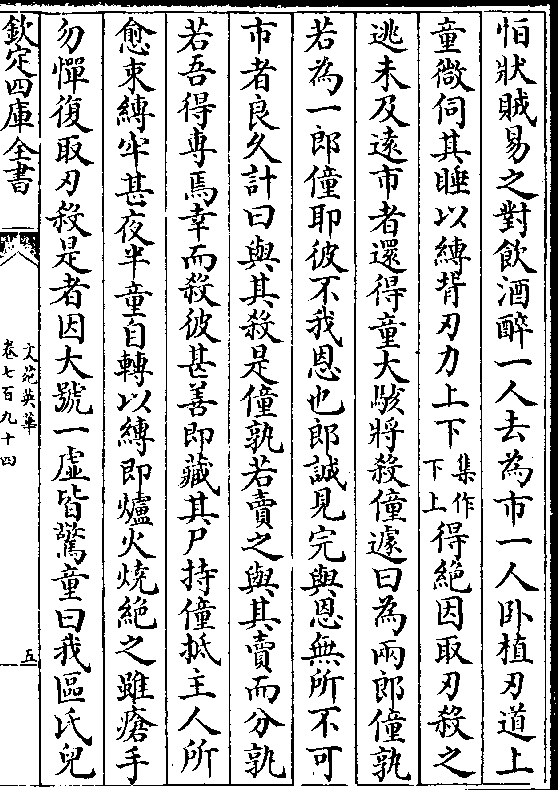 怕狀賊易之對飲酒醉一人去為市一人卧植刃道上
童微伺其睡以縛背刃力上下集作下上得絶因取刃殺之
逃未及遠市者還得童大駭將殺僮遽曰為兩郎僮孰
若為一郎僮耶彼不我恩也郎誠見完與恩無所不可
市者良久計曰與其殺是僮孰若賣之與其賣而分孰
若吾得専焉幸而殺彼甚善即藏其尸持僮抵主人所
愈束縛牢甚夜半童自轉以縛即爐火焼絶之雖瘡手
勿憚復取刃殺是者因大號一虛皆驚童曰我區氏兒
欽定四庫全書
文苑英華
卷七百九十四
五